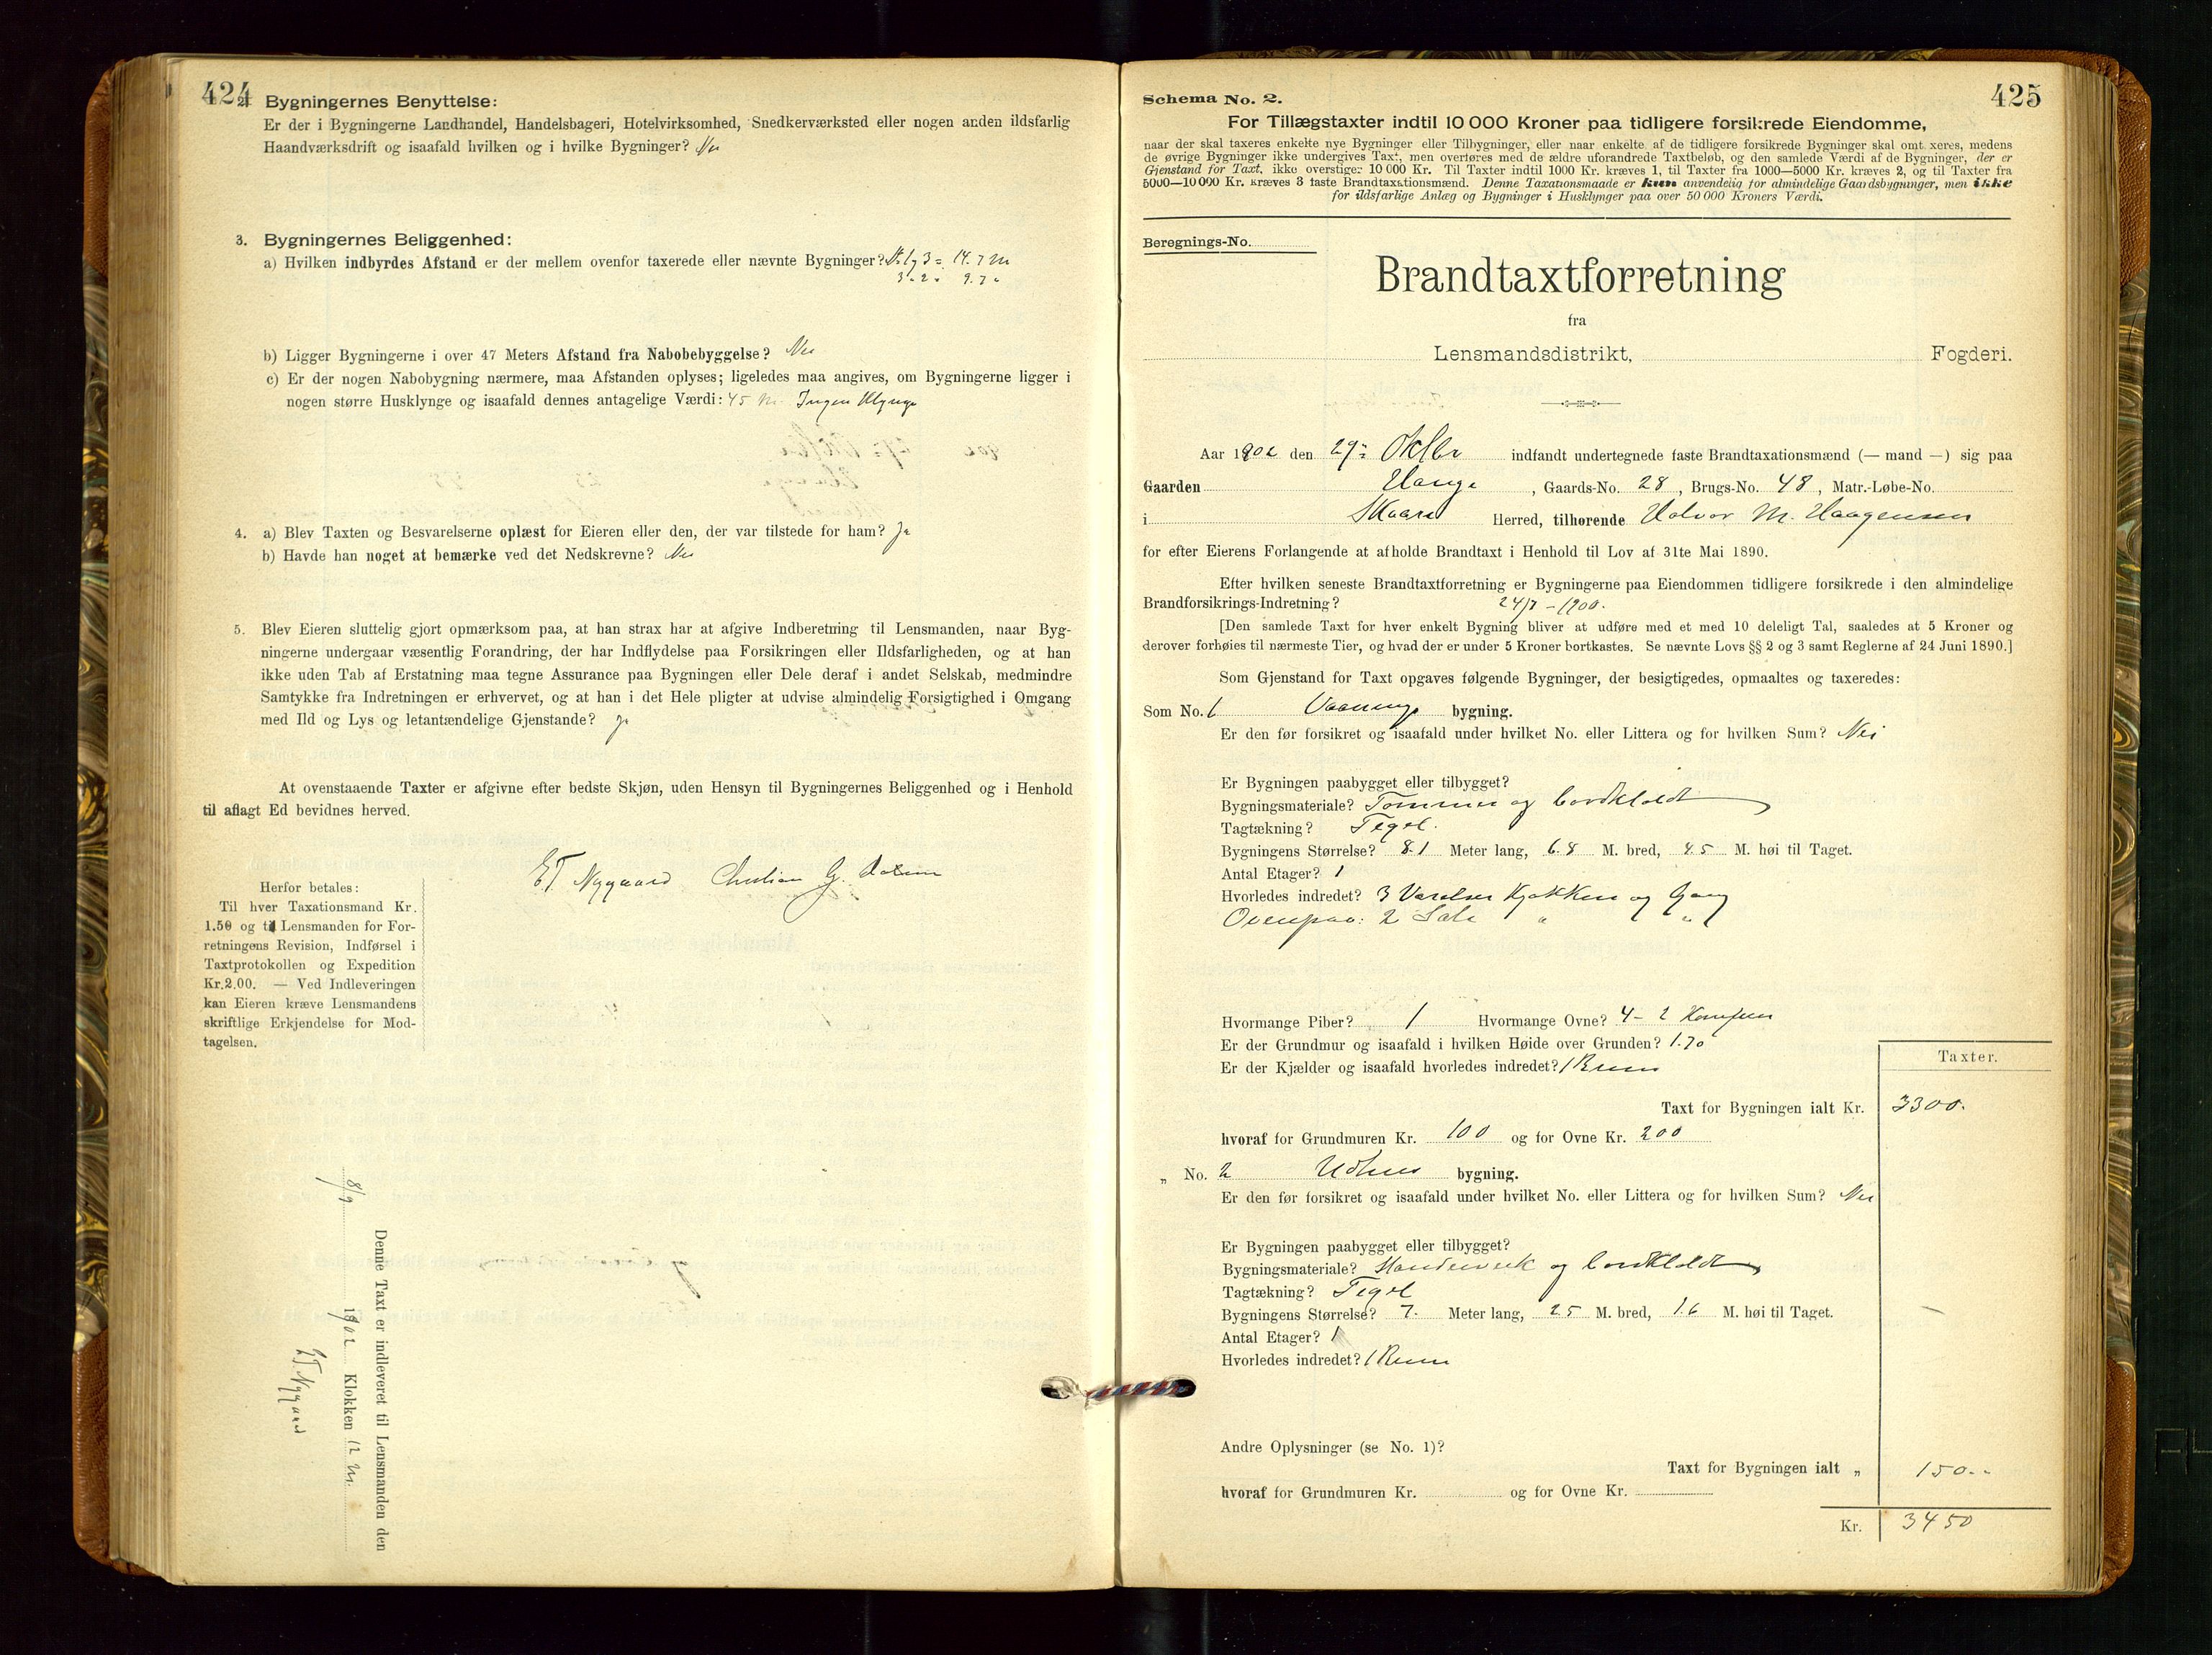 424
2. Bygningernes Benyttelse:
Er der i Bygningerne Landhandel, Handelsbageri, Hotelvirksomhed, Snedkerværksted eller nogen anden ildsfarlig
Haandværksdrift og isaafald hvilken og i hvilke Bygninger? Nei
3. Bygningernes Beliggenhed:
a) Hvilken indbyrdes Afstand er der mellem ovenfor taxerede eller nævnte Bygninger? No 1 og 3 = 14.7 m
3 - 2 " 9.7 "
b) Ligger Bygningerne i over 47 Meters Afstand fra Nabobebyggelse? Nei
c) Er der nogen Nabobygning nærmere, maa Afstanden oplyses; ligeledes maa angives, om Bygningerne ligger i
nogen større Husklynge og isaafald dennes antagelige Værdi: 45 m. Ingen Klynge
4. a) Blev Taxten og Besvarelserne oplæst for Eieren eller den, der var tilstede for ham? Ja
b) Havde han noget at bemærke ved det Nedskrevne? Nei
5. Blev Eieren sluttelig gjort opmærksom paa, at han strax har at afgive Indberetning til Lensmanden, naar Byg-
ningerne undergaar væsentlig Forandring, der har Indflydelse paa Forsikringen eller Ildsfarligheden, og at han
ikke uden Tab af Erstatning maa tegne Assurance paa Bygningen eller Dele deraf i andet Selskab, medmindre
Samtykke fra Indretningen er erhvervet, og at han i det Hele pligter at udvise almindelig Forsigtighed i Omgang
med Ild og Lys og letantændelige Gjenstande? Ja
At ovenstaaende Taxter er afgivne efter bedste Skjøn, uden Hensyn til Bygningernes Beliggenhed og i Henhold
til aflagt Ed bevidnes herved.
E T Nygaard Christian G.
Herfor betales:
Til hver Taxationsmand Kr.
1.50 og til Lensmanden for For-
retningens Revision, Indførsel i
Taxtprotokollen og Expedition
Kr.2.00. — Ved Indleveringen
kan Eieren kræve Lensmandens
skriftlige Erkjendelse for Mod-
tagelsen.
Denne Taxt er indleveret til Lensmanden den
8/9 1902 Klokken 12 M.
E T. Nygaard
425
Schema No. 2.
For Tillægstaxter indtil 10 000 Kroner paa tidligere forsikrede Eiendomme,
naar der skal taxeres enkelte nye Bygninger eller Tilbygninger, eller naar enkelte af de tidligere forsikrede Bygninger skal omtaxeres, medens
de øvrige Bygninger ikke undergives Taxt, men overføres med de ældre uforandrede Taxtbeløb, og den samlede Værdi af de Bygninger, der er
Gjenstand for Taxt, ikke overstiger 10 000 Kr. Til Taxter indtil 1000 Kr. kræves 1, til Taxter fra 1000—5000 Kr. kræves 2, og til Taxter fra
5000—10 000 Kr. kræves 3 faste Brandtaxationsmænd. Denne Taxationsmaade er kun anvendelig for almindelige Gaardsbygninger, men ikke
for ildsfarlige Anlæg og Bygninger i Husklynger paa over 50 000 Kroners Værdi.
Beregnings-No.
Brandtaxtforretning
fra
Lensmandsdistrikt, Fogderi.
Aar 1902 den 29= Oktbr indfandt undertegnede faste Brandtaxationsmænd (— mand —) sig paa
Gaarden Hauge , Gaards-No. 28 , Brugs-No. 48 , Matr.-Løbe-No.
i Skaare Herred, tilhørende Halvor M. Haagensen
for efter Eierens Forlangende at afholde Brandtaxt i Henhold til Lov af 31te Mai 1890.
Efter hvilken seneste Brandtaxtforretning er Bygningerne paa Eiendommen tidligere forsikrede i den almindelige
Brandforsikrings-Indretning? 24/7 - 1900.
[Den samlede Taxt for hver enkelt Bygning bliver at udføre med et med 10 deleligt Tal, saaledes at 5 Kroner og
derover forhøies til nærmeste Tier, og hvad der er under 5 Kroner bortkastes. Se nævnte Lovs §§ 2 og 3 samt Reglerne af 24 Juni 1890.]
Som Gjenstand for Taxt opgaves følgende Bygninger, der besigtigedes, opmaaltes og taxeredes:
Som No. 1 Vaanings bygning.
Er den før forsikret og isaafald under hvilket No. eller Littera og for hvilken Sum? Nei
Er Bygningen paabygget eller tilbygget?
Bygningsmateriale? Tømmer og bordklædt
Tagtækning? Tegel.
Bygningens Størrelse? 8.1 Meter lang, 6.8 M. bred, 4.5 M. høi til Taget.
Antal Etager? 1
Hvorledes indredet? 3 Værelser Kjøkken og Gang
Ovenpaa: 2 Sale " " "
Hvormange Piber? 1 Hvormange Ovne? 4 - 2 Komfurer
Er der Grundmur og isaafald i hvilken Høide over Grunden? 1.70
Er der Kjælder og isaafald hvorledes indredet? 1 Rum
Taxter.
Taxt for Bygningen ialt Kr. 3300.
hvoraf for Grundmuren Kr. 100 og for Ovne Kr. 200
„ No. 2 Udhus bygning.
Er den før forsikret og isaafald under hvilket No. eller Littera og for hvilken Sum? Nei
Er Bygningen paabygget eller tilbygget?
Bygningsmateriale? Standerverk og bordklædt
Tagtækning? Tegel
Bygningens Størrelse? 7. Meter lang, 2.5 M. bred, 1.6 M. høi til Taget.
Antal Etager? 1
Hvorledes indredet? 1 Rum
Andre Oplysninger (se No. 1)?
Taxt for Bygningen ialt „ 150..
hvoraf for Grundmuren Kr. og for Ovne Kr.
Kr. 3450